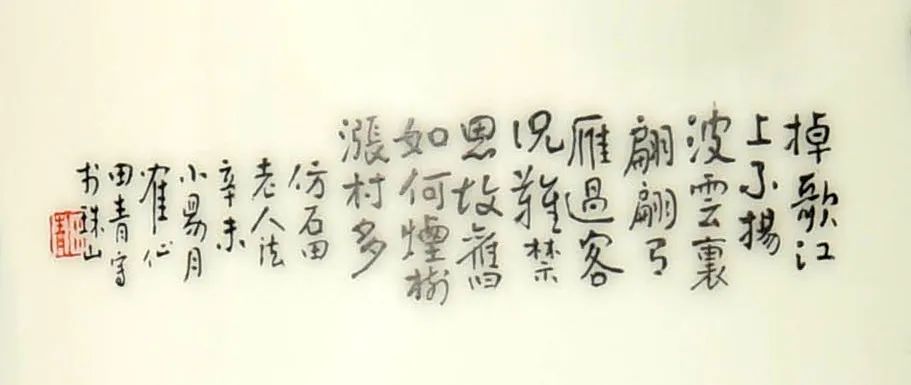 掉歌江
上不揚
波雲裏
翩翩有
雁過客
況難禁
思故舊
如何煙樹
漲村多
仿石田
老人法
辛未
小昜月
隺仙
田青寫
於珠山